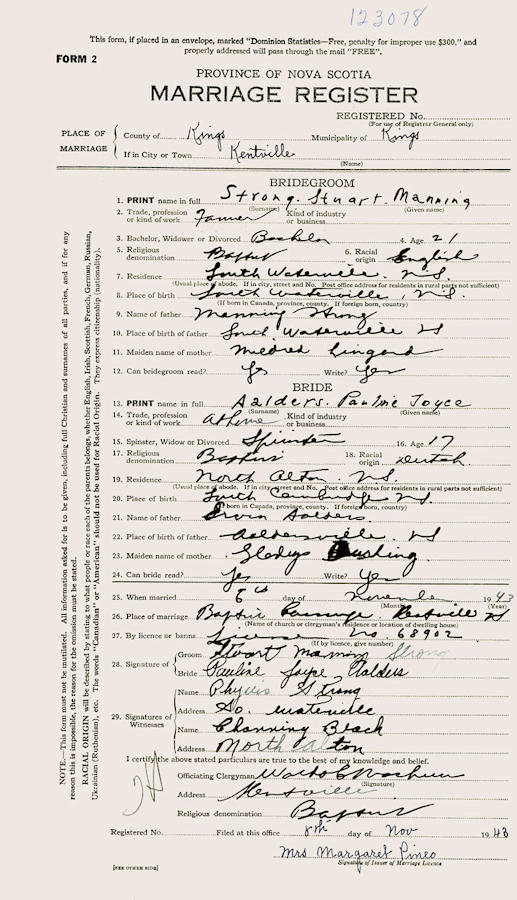 123078
This form, if placed in an envelope, marked "Dominion Statistics—Free, penalty for improper use $300," and
properly addressed will pass through the mail "FREE".
FORM 2
PROVINCE OF NOVA SCOTIA
MARRIAGE REGISTER
REGISTERED No.
(For use of Registrar General only)
PLACE OF MARRIAGE
County of Kings Municipality of Kings
If in City or Town Kentville
(Name)
BRIDEGROOM
1. PRINT name in full Strong. Stuart. Manning
(Surname) (Given name)
2. Trade, profession or kind of work Farmer Kind of industry or business
3. Bachelor, Widower or Divorced Bachelor 4. Age 21
5. Religious denomination Baptist 6. Racial origin English
7. Residence South Waterville. N.S.
(Usual place of abode. If in city, street and No. Post office address for residents in rural parts not sufficient)
8. Place of birth South Waterville, N.S.
(If born in Canada, province, county. If foreign born, country)
9. Name of father Manning Strong
10. Place of birth of father South Waterville NS
11. Maiden name of mother Mildred Lingard
12. Can bridegroom read? Yes Write? Yes
BRIDE
13. PRINT name in full Aalders. Pauline Joyce
(Surname) (Given name)
14. Trade, profession or kind of work At home Kind of industry or business
15. Spinster, Widow or Divorced Spinster 16. Age 17
17. Religious denomination Baptist 18. Racial origin Dutch
19. Residence North Alton. N.S.
(Usual place of abode. If in city, street and No. Post office address for residents in rural parts not sufficient)
20. Place of birth South Cambridge NS
(If born in Canada, province, county. If foreign born, country)
21. Name of father Aalders
22. Place of birth of father Aaldersville. NS
23. Maiden name of mother Gladys
24. Can bride read? Yes Write? Yes
25. When married 6th day of November 1943
(Month) (Year)
26. Place of marriage Baptist Parsonage Kentville NS
(Name of church or clergyman's residence or location of dwelling house)
27. By licence or banns License No. 68902
(If by licence, give number)
28. Signature of
Groom Stuart Manning Strong
Bride Pauline Joyce Aalders
29. Signatures of Witnesses
Name Phyllis Strong
Address So. Waterville
Name Channing Black
Address North Alton
I certify the above stated particulars are true to the best of my knowledge and belief.
Officiating Clergyman
(Signature)
Address Kentville
Religious denomination Baptist
Registered No. Filed at this office 8th day of Nov 1943
Mrs Margaret Pineo
Signature of Issuer of Marriage Licence
[SEE OTHER SIDE]
NOTE.—This form must not be mutilated. All information asked for is to be given, including full Christian and surnames of all parties, and if for any
reason this is impossible, the reason for the omission must be stated.
RACIAL ORIGIN will be described by stating to what people or race each of the parents belongs, whether English, Irish, Scottish, French, German, Russian,
Ukrainian (Ruthenian), etc. The words "Canadian" or "American" should not be used for Racial Origin. They express citizenship (nationality).